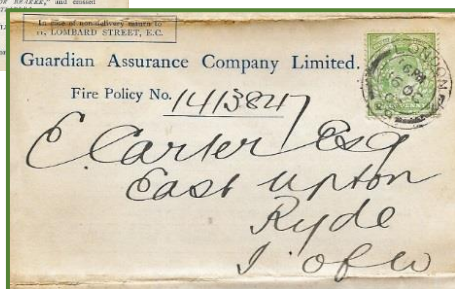 and crossed
In case of non-delivery return to
11, LOMBARD STREET, E.C.
Guardian Assurance Company Limited.
Fire Policy No. 1413847
E. Carter Esq
East Upton
Ryde
I. of W
LONDON